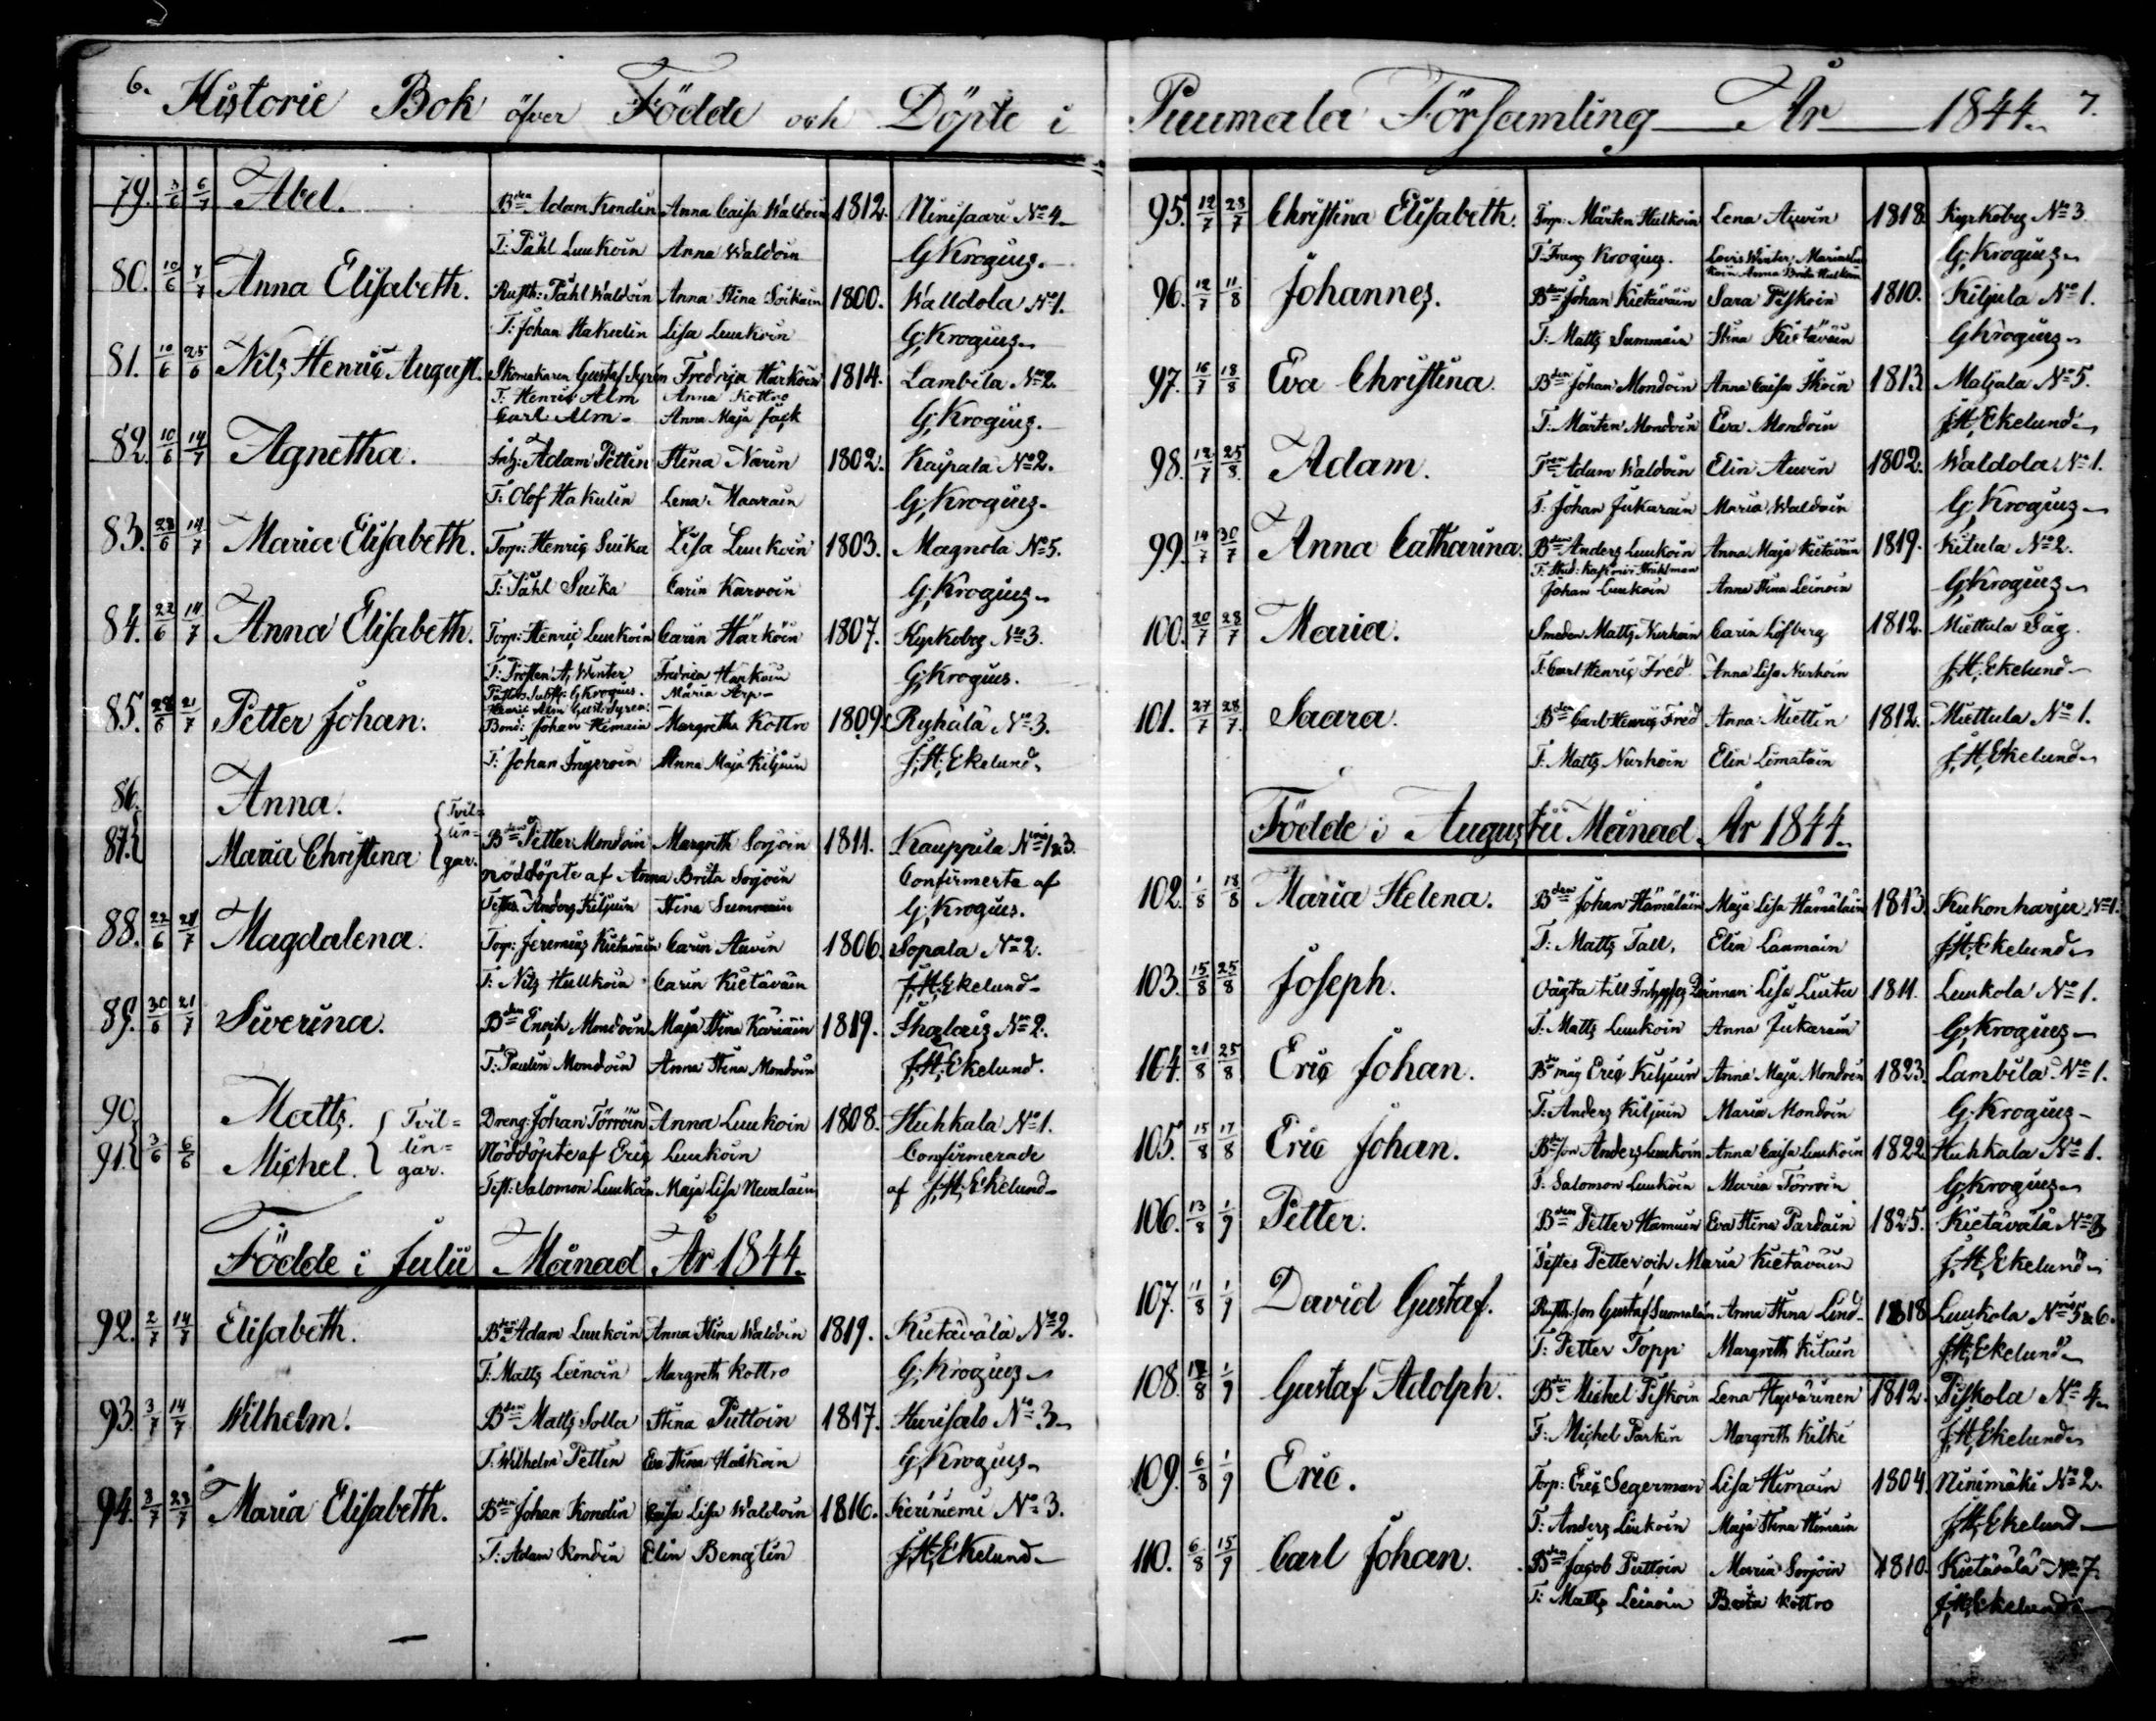 6. Historie Bok öfver Födde och Döpte i
79. 3/6 6/7 Abel. Bden Adam Kondin Anna Caisa Waldoin 1812. Ninisaari No 4
T: Påhl Luukoin Anna Waldoin G. Krogius.
80. 10/6 7/7 Anna Elisabeth. Rusth: Påhl Waldoin Anna Stina Soikain 1800. Walldola No 1.
T: Johan Hakulin Lisa Luukoin G. Krogius
81. 10/6 25/6 Nils Henric August. Skomakaren Gustaf Syrén Fredrica Härköin 1814. Lambila No 2.
T: Henric Alm Anna Kottro
Carl Alm Anna Maja G. Krogius.
82. 10/6 14/7 Agnetha. Inh: Adam Pettin Stina Narin 1802. Kaipala No 2.
T: Olof Hakulin Lena Maarain G. Krogius
83. 23/6 14/7 Maria Elisabeth. Torp: Henric Suika Lisa Luukoin 1803. Magnola No 5.
T: Påhl Suika Carin Karvoin G. Krogius
84. 22/6 14/7 Anna Elisabeth. Torp: Henric Luukoin Carin Härköin 1807. Kyrkobg No 3.
T: A, Winter Fredrica Härköin G. Krogius.
G Krogius. Maria Arp
Henric Alm Gust: Syren.
85. 28/6 21/7 Petter Johan. Bond: Johan Himain Margretha Kottro 1809. Ryhälä No 3.
T: Johan Ingeroin Anna Maja Kiljuin J. H. Ekelund
86. Anna. Tvil=
87. Maria Christina lin= gar. Bden Petter Mondoin Margreth Sorjoin 1811. Kauppila No 1 & 3.
nöddöpte af Anna Brita Sorjoin Confirmerta af
Testes Anders Kiljuin Stina Summain G. Krogius.
88. 22/6 21/7 Magdalena. Torp: Jeremias Kietäväin Carin Auvin 1806. Sopala No 2.
T: Nils Hulkoin Carin Kietäväin J. H. Ekelund
89. 30/6 21/7 Siverina. Bden Enoch Mondoin Maja Stina Käriäin 1819. No 2.
T: Paulin Mondoin Anna Stina Mondoin J. H. Ekelund.
90. Matts. Tvil= Dreng: Johan Törröin Anna Luukoin 1808. Huhkala No 1.
91. 3/6 6/6 Michel. lin= gar. Nöddöpte af Eric Luukoin Confirmerade
Test: Salomon Luukoin Maja Lisa Nevalain af J. H. Ekelund
Födde i Julii Månad År 1844.
92. 2/7 14/7 Elisabeth. Bden Adam Luukoin Anna Stina Waldoin 1819. Kietävälä No 2.
T: Matts Leinoin Margreth Kottro G. Krogius
93. 3/7 14/7 Wilhelm. Bden Matts Solla Stina Puttoin 1817. Hurisalo No 3
T: Wilhelm Pettin Eva Stina Härkoin G. Krogius
94. 3/7 23/7 Maria Elisabeth. Bden Johan Kondin Caisa Lisa Waldoin 1816. Keriniemi No 3.
T: Adam Kondin Elin Bengtin J. H. Ekelund
Puumala Församling År 1844. 7.
95. 12/7 28/7 Christina Elisabeth. Torp: Mårten Hulkoin Lena Auvin 1818. Kyrkobg No 3.
T: Frans Krogius. Lovis Winter, Maria Luu
koin Anna Brita Hulkoin G. Krogius
96. 12/7 11/8 Johannes. Bden Johan Kietäväin Sara Piskoin 1810. Kiljula No 1.
T: Matts Summain Stina Kietäväin G Krogius
97. 16/7 18/8 Eva Christina. Bden Johan Mondoin Anna Caisa Ikoin 1813. Maljala No 5.
T: Mårten Mondoin Eva Mondoin J. H. Ekelund
98. 12/7 25/8 Adam. Tren Adam Waldoin Elin Auvin 1802. Waldola No 1.
T: Johan Jukarain Maria Waldoin G. Krogius
99. 14/7 30/7 Anna Catharina. Bden Anders Luukoin Anna Maja Kietäväin 1819. Kitula No 2.
T: Stud: Kasimir Strålman
Johan Luukoin Anna Stina Leinoin G. Krogius
100. 20/7 28/7 Maria. Smeden Matts Nurhoin Carin Löfberg 1812. Miettula Såg.
T: Carl Henric Fred Anna Lisa Nurhoin J. H. Ekelund
101. 27/7 28/7 Saara. Bden Carl Henric Fred Anna Miettin 1812. Miettula No 1.
T: Matts Nurhoin Elin Limatain J. H. Ekelund
Födde i Augustii Månad År 1844.
102. 1/8 18/8 Maria Helena. Bden Johan Hämäläin Maja Lisa Hämäläin 1813. Kukonharju No 1.
T: Matts Tall, Elin Laamain J. H. Ekelund
103. 15/8 25/8 Joseph. Oägta till Inhyses Qvinnan Lisa Lintu 1811. Luukola No 1.
T: Matts Luukoin Anna Jukarain G. Krogius
104. 21/8 25/8 Eric Johan. Bde måg Eric Kiljuin Anna Maja Mondoin 1823. Lambila No 1.
T: Anders Kiljuin Maria Mondoin G. Krogius
105. 15/8 17/8 Eric Johan. Bde son Anders Luukoin Anna Caisa Luukoin 1822. Huhkala No 1.
T: Salomon Luukoin Maria Törröin G. Krogius
106. 13/8 1/9 Petter. Bden Petter Hämäin Eva Stina Pardain 1825. Kietävälä No 3
Testes Petter och Maria Kietäväin J. H. Ekelund
107. 1/8 1/9 David Gustaf. Rusth: son Gustaf Suomalain Anna Stina Lind 1818 Luukola No 5 & 6.
T: Petter Topp Margreth Kituin J. H. Ekelund
108. 12/8 1/9 Gustaf Adolph. Bden Michel Piskoin Lena Hyvärinen 1812. Piskola No 4
T: Michel Parkin Margreth Kilki J. H. Ekelund
109. 6/8 1/9 Eric. Torp: Eric Segerman Lisa Himain 1804. Ninimäki No 2.
T: Anders Liukoin Maja Stina Himain J. H. Ekelund
110. 6/8 15/9 Carl Johan. Bden Jacob Puttoin Maria Sorjoin 1810. Kietävälä No 7.
T: Matts Leinoin Brita Kottro J. H. Ekelund